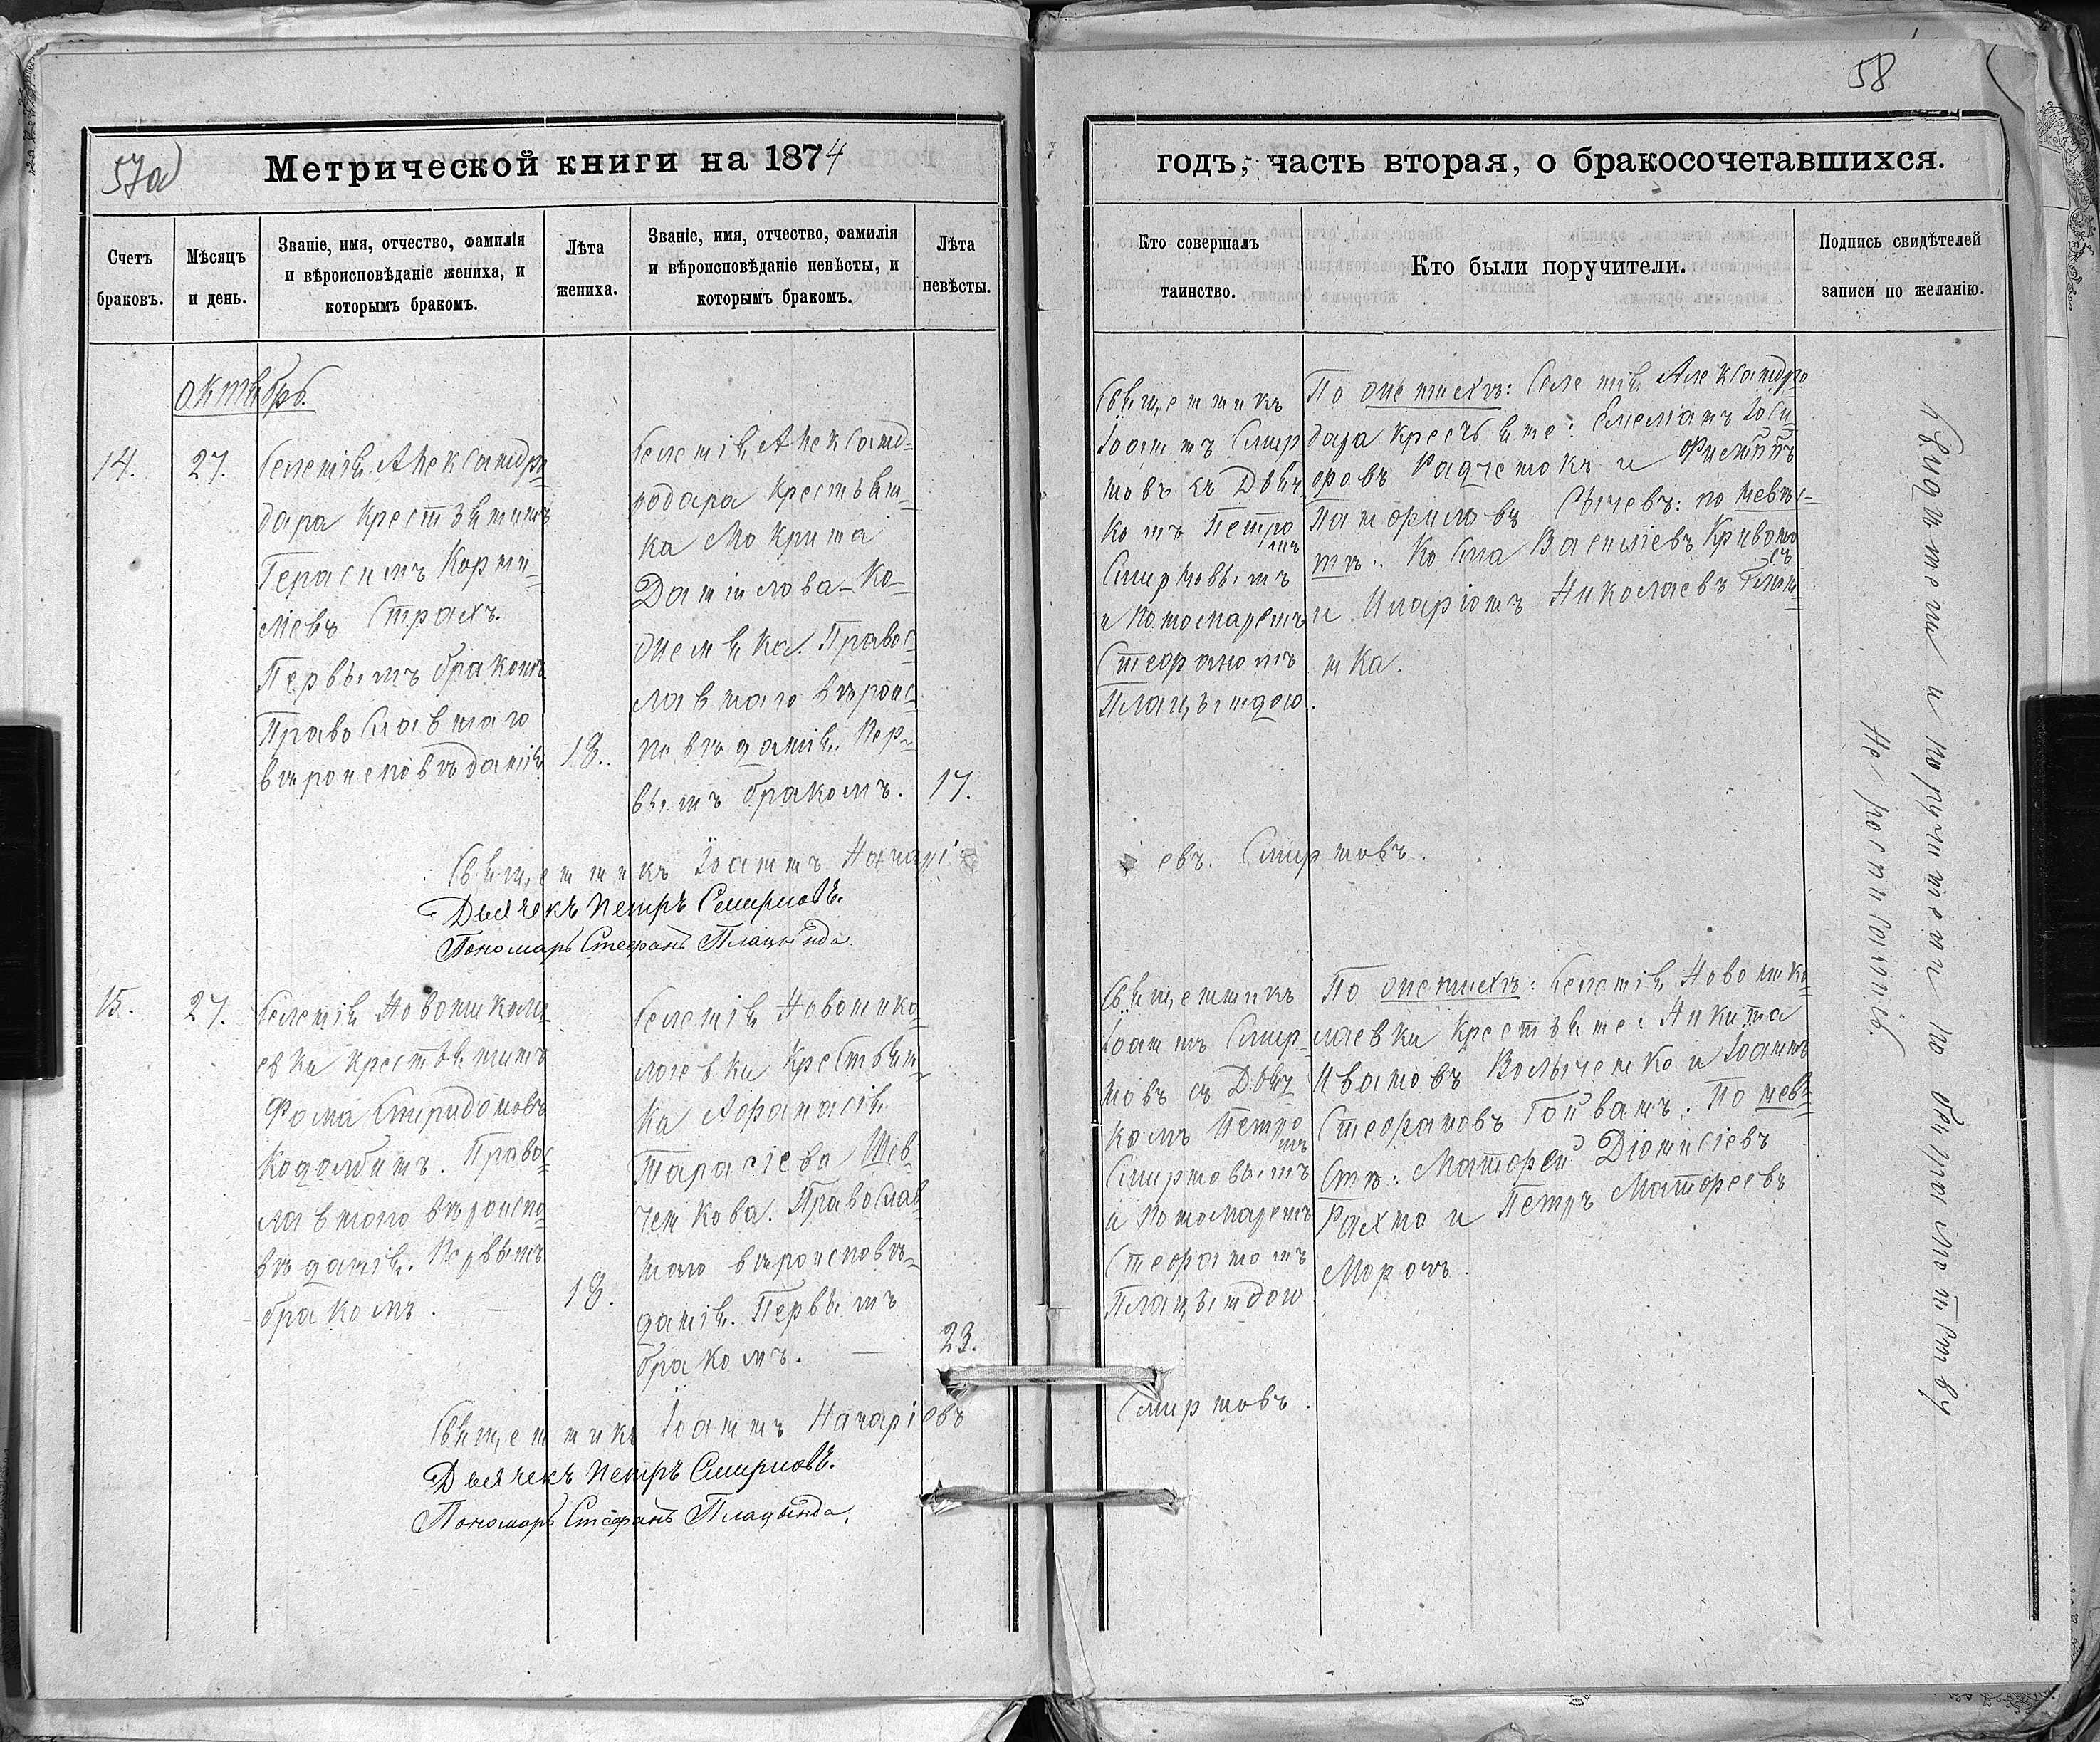 58
57об
Метрической книги на 1874
годъ, часть вторая, о бракосочетавшихся.
Счетъ браковъ.
Мѣсяцъ и день.
Званіе, имя, отчество, фамилія
и вѣроисповѣданіе жениха, и
которымъ бракомъ.
Лѣта жениха.
Званіе, имя, отчество, фамилія
и вѣроисповѣданіе невѣсты, и
которымъ бракомъ.
Лѣта невѣсты.
Кто совершалъ таинство.
Кто были поручители.
Подпись свидѣтелей
записи по желанію.
октябрь.
14.
27.
Селенія Александро
дара крестьянинъ
Герасимъ Корни-
ліевъ Страхъ.
Первымъ бракомъ
Православнаго
вѣроисповѣданія
18.
Селенія Александ-
родара крестьян-
ка Мокрина
Даніилова Ко-
Правос-
лавнаго вѣроис-
повѣданія. Пер-
вымъ бракомъ.
17.
Священникъ
Іоаннъ Смир
новъ съ Дьяч
комъ Петро
мъ
Смирновымъ
и пономаремъ
Стефаномъ
Плацындою.
По женихѣ: Селенія Александро
дара крестьяне: Емеліанъ Іоси-
фовъ Радченокъ и Филиппъ
Панфиловъ Сычевъ: по невѣс-
тѣ: Косма Василіевъ Кривоно
съ
и Иларіонъ Николаевъ
нка.
Священникъ Іоаннъ Назаріевъ Смирновъ.
Дьячекъ Петръ Смирновъ.
Пономарь Стефанъ Плацында.
15.
27.
Селенія Новоникола
евки крестьянинъ
Фома Спиридоновъ
Кодолбинъ. Правос
лавнаго вѣроиспо
вѣданія. Первымъ
бракомъ.
18.
Селенія Новонико
лаевки крестьян-
ка Афанасія
Тарасіева Шев-
ченкова. Православ
наго вѣроисповѣ-
данія. Первымъ
бракомъ.
23.
Священникъ
Іоаннъ Смир-
новъ съ Дьяч
комъ Петро
мъ
Смирновымъ
и пономаремъ
Стефаномъ
Плацындою
По женихѣ: Селенія Новонико
лаевки крестьяне: Никита
Ивановъ Волыченко и Іоаннъ
Стефановъ Гойванъ. По невѣ-
стѣ: Матфей Діонисіевъ
Рахно и Петръ Матфеевъ
Морозъ.
Священникъ Іоаннъ Назаріевъ Смирновъ.
Дьячекъ Петръ Смирновъ.
Пономарь Стефанъ Плацында.
Свидѣтели и поручители по безграмотству
не росписались.